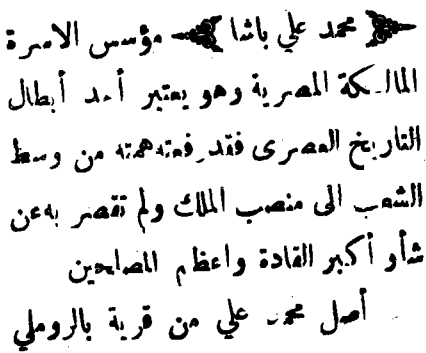 محمد علي باشا مؤسس الاسرة
المالكة المصرية وهو يعتبر أحد أبطال
التاريخ المصرى فقد رفعته همته من وسط
الشعب الى منصب الملك ولم تقصر به عن
شأو أكبر القادة واعظم المصلحين
أصل محمد علي من قرية بالروملي